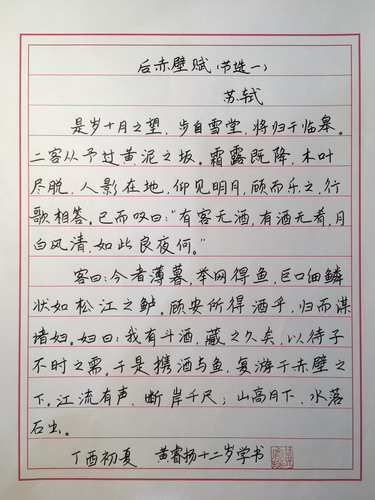 后赤壁赋(节选一)
苏轼
是岁十月之望，步自雪堂，将归于临皋。
二客从予过黄泥之坂。霜露既降，木叶
尽脱，人影在地，仰见明月，顾而乐之，行
歌相答。已而叹曰："有客无酒，有酒无肴，月
白风清，如此良夜何。"
客曰：今者薄暮，举网得鱼，巨口细鳞
状如松江之鲈。顾安所得酒乎，归而谋
诸妇。妇曰：我有斗酒，藏之久矣，以待子
不时之需。于是携酒与鱼，复游于赤壁之
下。江流有声，断岸千尺；山高月下，水落
石出。
丁酉初夏 黄睿扬十二岁学书